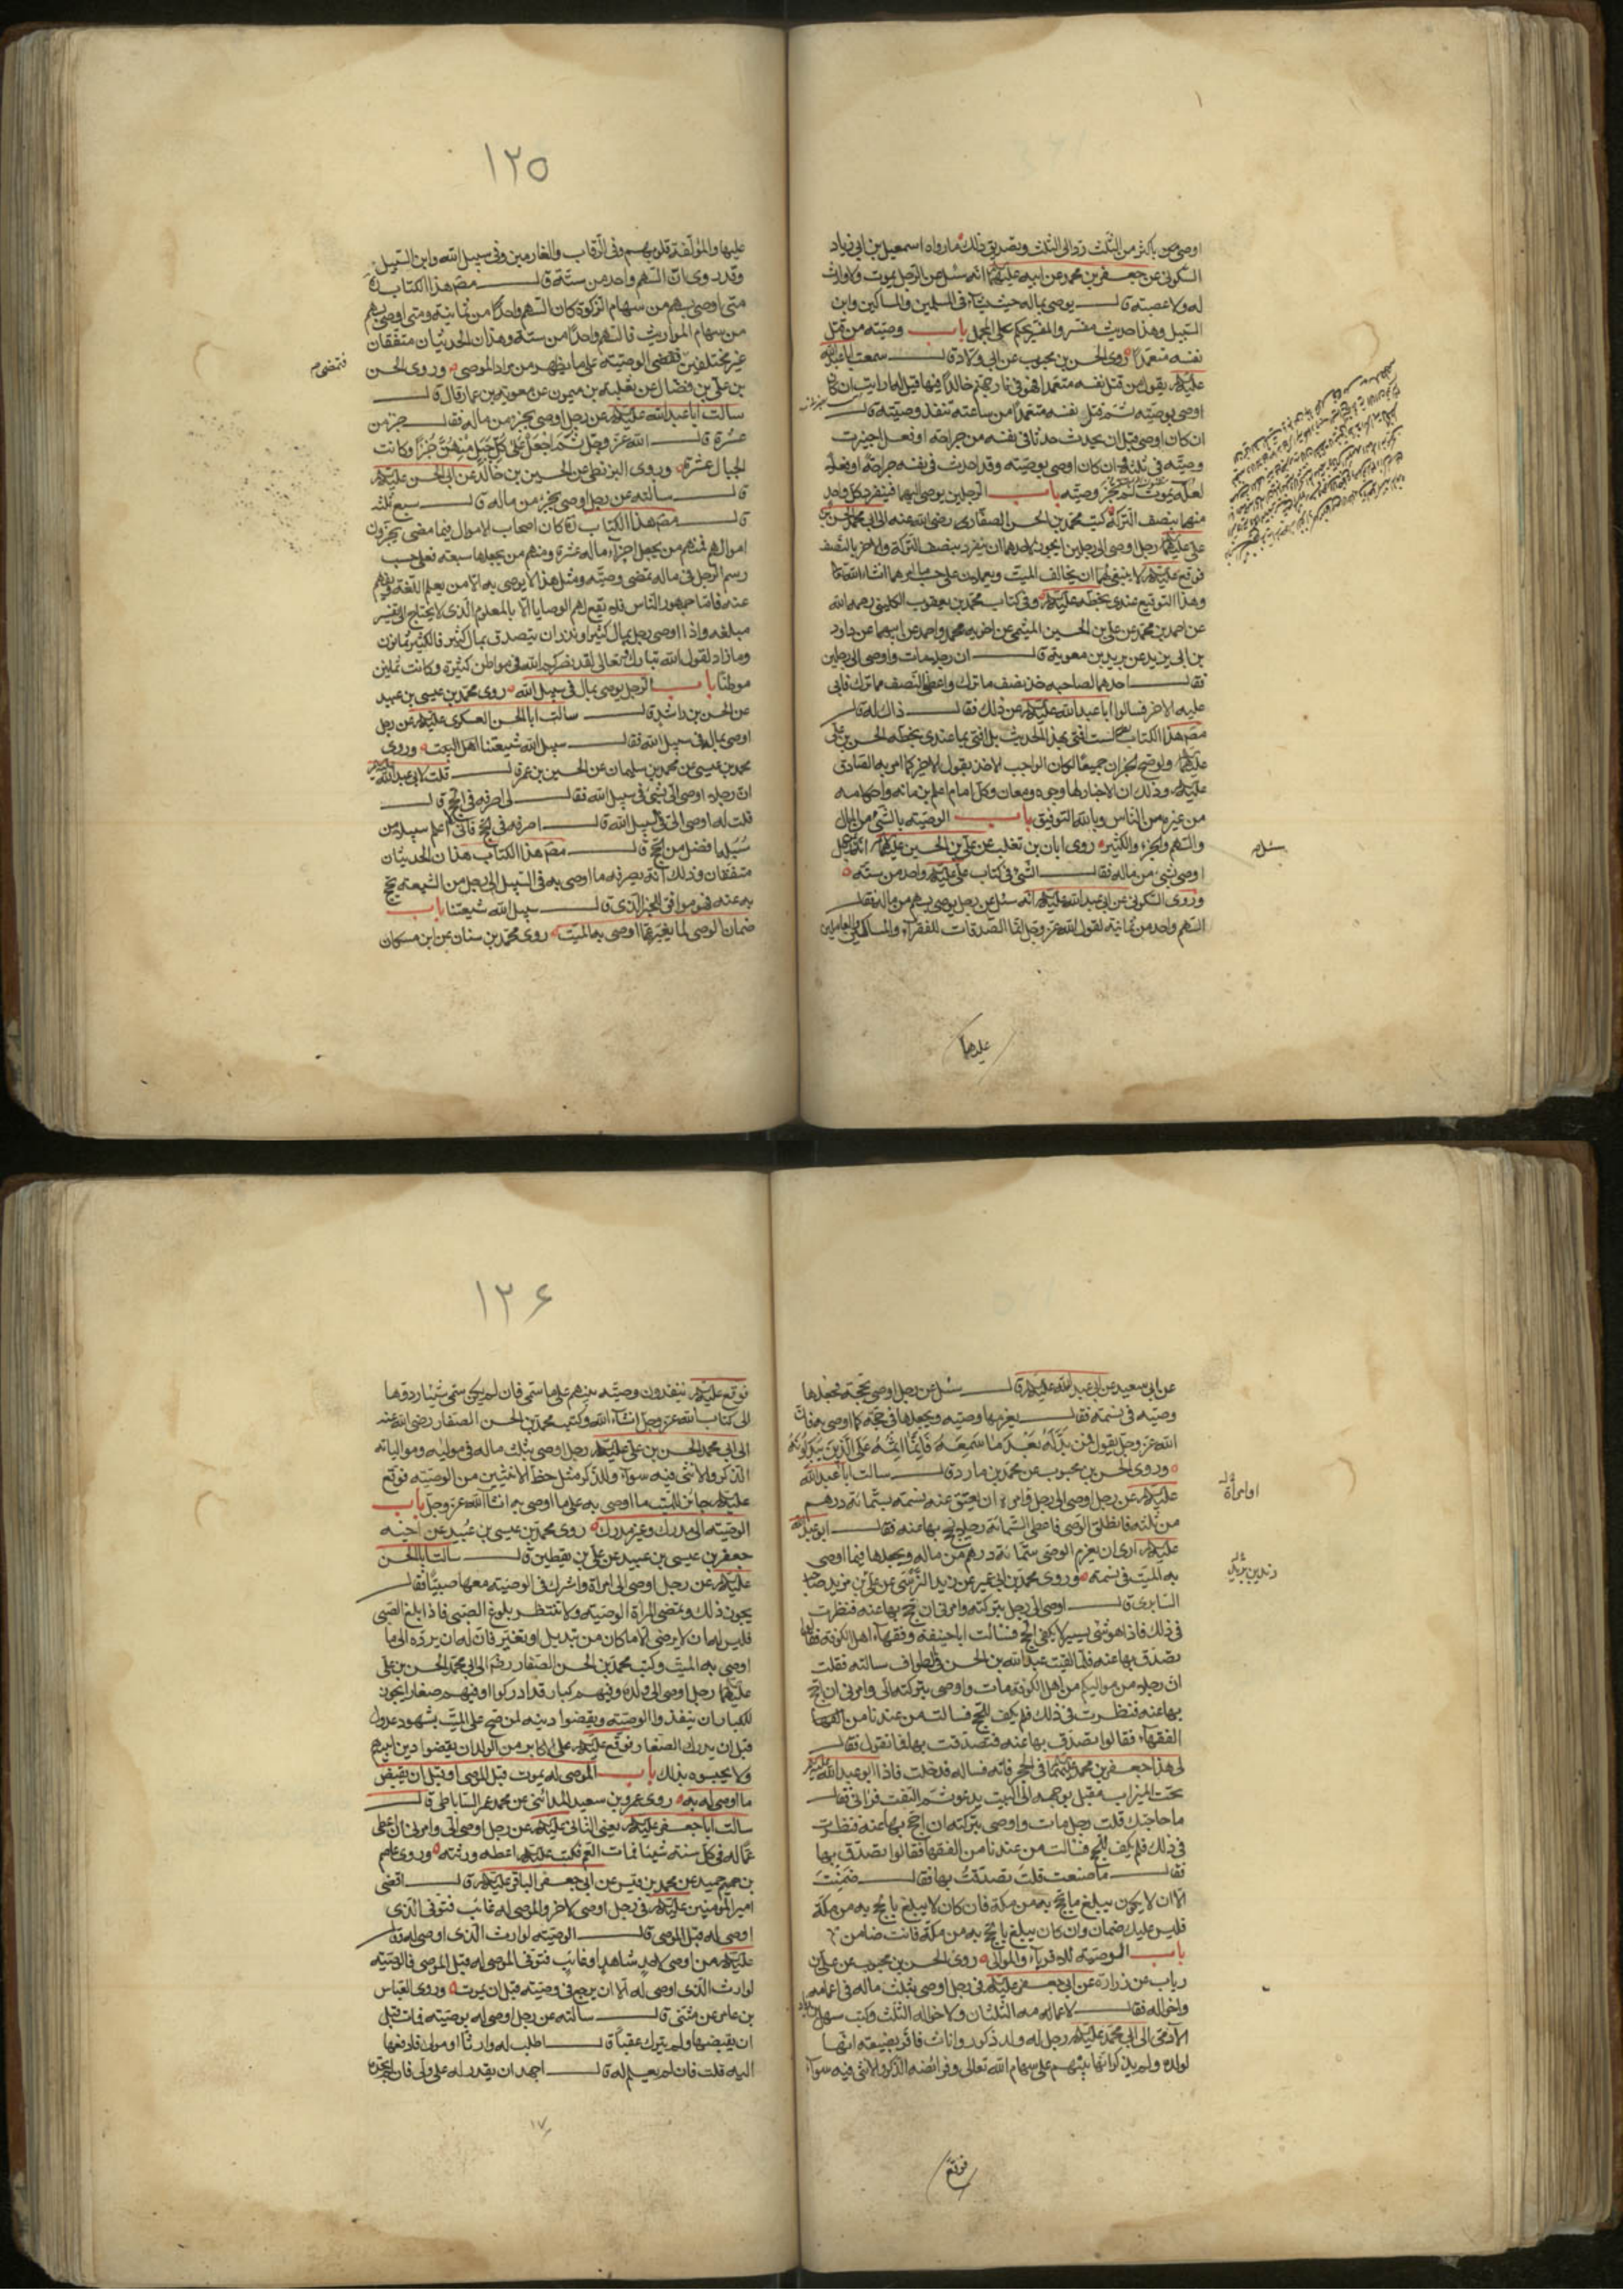 اوصى من باكثر من الثلث ردّ الى الثلث وتصديق ذلك ما رواه اسمعيل بن ابي زياد
السكوني عن جعفر بن محمد عن ابيه عليهما انه سئل عن الرجل يموت ولا وارث
له ولا عصبة قال يوصى بماله حيث شآء في المسلمين والمساكين وابن
السبيل وهذا حديث مفسر والمفسر يحكم على المجمل باب وصيّته من قتل
نفسه متعمدًا روى الحسن بن محبوب عن ابي ولّاد قال سمعت ابا عبد الله
عليه يقول من قتل نفسه متعمدا فهو في نار جهنم خالدًا فيها قيل له ارايت ان كان
اوصى بوصيّته ثم قتل نفسه متعمدًا من ساعته تنفذ وصيّته قال
ان كان اوصى قبل ان يحدث حدثا في نفسه من جراحة او فعل اجيزت
وصيّته في ثلثه وان كان اوصى بوصيّته وقد احدث في نفسه جراحة او فعلًا
لعلّه يموت لم تجز وصيّته باب الرجلين يوصى اليهما فينفرد كل واحد
منهما بنصف التركة كتب محمد بن الحسن الصفّار رضى الله عنه الى ابي محمد الحسن بن
على عليهما رجل اوصى الى رجلين ايجوز لاحدهما ان ينفرد بنصف التركة والاخر بالنصف
فوقع عليه لا ينبغي لهما ان يخالفا الميّت ويعملان على حسب ما امرهما انشاء الله
وهذا التوقيع عندى بخطّه عليه وفي كتاب محمد بن يعقوب الكليني رحمه الله
عن احمد بن محمد عن علي بن الحسين الميثمى عن اخويه محمد واحمد عن ابيهما عن داود
بن ابي يزيد عن بريد بن معوية قال ان رجلا مات واوصى الى رجلين
فقال احدهما لصاحبه خذ نصف ما ترك واعطني النصف مما ترك فابى
عليه الاخر فسالوا ابا عبد الله عليه عن ذلك فقال ذاك له قال
مصّ هذا الكتاب لست افتى بهذا الحديث بل افتى بما عندى بخطّه الحسن بن على
عليهما ولو صح الخبران جميعًا لكان الواجب الاخذ بقول الاخير كما امر به الصادق
عليه وذلك ان الاخبار لها وجوه ومعان وكل امام اعلم بزمانه واحكامه
من غيره من الناس وبالله التوفيق باب الوصيّة بالشئ من المال
والسهم والجزء والكثير روى ابان بن تغلب عن على بن الحسين عليهما انه رجل
اوصى بشئ من ماله فقال الشئ في كتاب على عليه واحد من ستة
وروى السكوني عن ابي عبد الله عليه انه سئل عن رجل يوصى بسهم من ماله فقال
السهم واحد من ثمانية لقول الله عز وجل انما الصدقات للفقرآء والمساكين والعاملين
سئل
عليها
١٢٥
عليها والمؤلّفة قلوبهم وفي الرّقاب والغارمين وفي سبيل الله وابن السبيل
وقد روى ان السهم واحد من ستّة قال مصّ هذا الكتاب
متى اوصى بسهم من سهام الزكوة كان السهم واحدًا من ثمانية ومتى اوصى بسهم
من سهام المواريث فالسهم واحدًا من ستة وهذان الحديثان متفقان
غير مختلفين فقضى الوصيّة على ما يظهر من مراد الموصى وروى الحسن
بن على بن فضال عن ثعلبة بن ميمون عن معوية بن عمار قال
سالت ابا عبد الله عليه عن رجل اوصى بجزء من ماله فقال جزء من
عشرة قال الله عز وجل ثم اجعل على كل جبل منهن جزءًا وكانت
الجبال عشرة وروى البزنطى عن الحسين بن خالد عن ابي الحسن عليه
قال سالته عن رجل اوصى بجزء من ماله قال سبع ثلثه
قال مصّ هذا الكتاب كان اصحاب الاموال فيما مضى يجزون
اموالهم فمنهم من يجعل اجزآء ماله عشرة ومنهم من يجعلها سبعة فعلى حسب
رسم الرجل في ماله تمضى وصيّته ومثل هذا لا يوصى به الا من يعلم اللغة ويفهم
عنه فامّا جمهور الناس فلا تقع لهم الوصايا الا بالمعلوم الذى لا يحتاج الى تفسير
مبلغه واذا اوصى رجل بمال كثير او نذر ان يتصدق بمال كثير فالكثير ثمانون
وما زاد لقول الله تبارك وتعالى لقد نصركم الله في مواطن كثيرة وكانت ثمانين
موطنًا باب الرجل يوصى بمال في سبيل الله روى محمد بن عيسى بن عبيد
عن الحسن بن راشد قال سالت ابا الحسن العسكرى عليه عن رجل
اوصى بمال في سبيل الله فقال سبيل الله شيعتنا اهل البيت وروى
محمد بن عيسى عن محمد بن سليمان عن الحسين بن عمر قال قلت لابي عبد الله
ان رجلا اوصى الىّ بشئ في سبيل الله فقال لى اصرفه في الحج قال
قلت له اوصى الىّ في السبيل الله قال اصرفه في الحج فانّى لا اعلم سبيلا من
سُبُلِه افضل من الحج قال مصّ هذا الكتاب هذان الحديثان
متفقان وذلك انه يصرف ما اوصى به في السبيل الى رجل من الشيعة يحج
به عنه فهو موافق الخبر الذى قال سبيل الله شيعتنا باب
ضمان الوصى لما يغيره عما اوصى به الميّت روى محمد بن سنان عن ابن مسكان
فتمضى
عن ابي سعيد عن ابي عبد الله عليه قال سئل عن رجل اوصى بحجّة فجعلها
وصيّه في نسمة فقال يغرمها وصيّه ويجعلها في حجة كما اوصى به فان
الله عز وجل يقول فمن بدّله بعد ما سمعه فانما اثمه على الذين يبدّلونه
وروى الحسن بن محبوب عن محمد بن مارد قال سالت ابا عبد الله
عليه عن رجل اوصى الى رجل وامره ان يعتق عنه نسمة بستّمائة درهم
من ثلثه فانطلق الوصى فاعطى الستّمائة رجلا يحج بها عنه فقال ابو عبد الله
عليه ارى ان يغرم الوصى ستّمائة درهم من ماله ويجعلها فيما اوصى
به الميّت في نسمة وروى محمد بن ابي عمير عن زيد النرسى عن على بن مزيد صاحب
السابرى قال اوصى الىّ رجل بتركته وامرنى ان احج بها عنه فنظرت
في ذلك فاذا هو شئ يسير لا يكفى للحج فسالت ابا حنيفة وفقهآء اهل الكوفة فقالوا
تصدّق بها عنه فلما لقيت عبد الله بن الحسن في الطواف سالته فقلت
ان رجلا من مواليكم من اهل الكوفة مات واوصى بتركته الىّ وامرنى ان احج
بها عنه فنظرت في ذلك فلم يكف للحج فسالت من عندنا من الفقهآ
الفقهآء فقالوا تصدّق بها عنه فتصدّقت بها فما تقول فقال
لى هذا جعفر بن محمد عليهما في الحجر فاته فساله فدخلت فاذا ابو عبد الله
تحت الميزاب مقبل بوجهه الى البيت يدعو ثم التفت فرآني فقال
ما حاجتك قلت رجل مات واوصى بتركته ان احج بها عنه فنظرت
في ذلك فلم يكف للحج فسالت من عندنا من الفقهآ فقالوا تصدّق بها
فقال ما صنعت قلت تصدّقتُ بها فقال ضمنت
الّا ان لا يكون يبلغ ما يحج به من مكة فان كان لا يبلغ ما يحج به من مكة
فليس عليك ضمان وان كان يبلغ ما يحج به من مكة فانت ضامن
باب الوصيّة للاقرباء والموالى روى الحسن بن محبوب عن على بن
رياب عن زرارة عن ابي جعفر عليه في رجل اوصى بثلث ماله في اعمامه
واخواله فقال لاعمامه الثلثان ولاخواله الثلث وكتب سهل بن زياد
الآدمى الى ابي محمد عليه رجل له ولد ذكور واناث فاقر بضيعة انها
لولده ولم يذكر انها بينهم على سهام الله تعالى وفرائضه الذكر والانثى فيه سوآء
او امرأة
فوقع
١٢۶
فوقع عليه ينفذون وصيّة ابيهم على ما سمّى فان لم يكن سمّى شيئا ردوها
الى كتاب الله عز وجل انشآء الله وكتب محمد بن الحسن الصفار رضى الله عنه
الى ابي محمد الحسن بن على عليه رجل اوصى بثلث ماله في مواليه وموالياته
الذكر والانثى فيه سوآء وللذكر مثل حظ الانثيين من الوصيّة فوقع
عليه جائز للميّت ما اوصى به على ما اوصى به انشآء الله عز وجل باب
الوصيّة الى مدرك وغير مدرك روى محمد بن عيسى بن عُبيد عن اخيه
جعفر بن عيسى بن عبيد عن على بن يقطين قال سالت ابا الحسن
عليه عن رجل اوصى الى امراة واشرك في الوصيّة معها صبيّا فقال
يجوز ذلك وتمضى المرأة الوصيّة ولا تنتظر بلوغ الصبى فاذا بلغ الصبى
فليس له ان لا يرضى الا ما كان من تبديل او تغيير فان له ان يردّه الى ما
اوصى به الميّت وكتب محمد بن الحسن الصفار رضى الى ابي محمد الحسن بن على
عليهما رجل اوصى الى ولده وفيهم كبار قد ادركوا وفيهم صغار ايجوز
للكبار ان ينفذوا الوصيّة ويقضوا دينه لمن صح على الميّت بشهود عدول
قبل ان يدرك الصغار فوقع عليه على الاكابر من الولد ان يقضوا دين ابيهم
ولا يحبسوه بذلك باب الموصى له يموت قبل الموصى او قبل ان يقبض
ما اوصى له به روى عمرو بن سعيد المدائنى عن محمد عمر الساباطى قال
سالت ابا جعفر عليه يعنى الثانى عليه عن رجل اوصى الىّ وامرنى ان اعطى
عمّا له في كل سنة شيئا فمات العم فكتب عليه اعطه ورثته وروى عاصم
بن حميد عن محمد بن قيس عن ابي جعفر الباقر عليه قال قضى
امير المؤمنين عليه في رجل اوصى لاخر والموصى له غائب فتوفى الذى
اوصى له قبل الموصى قال الوصيّة لوارث الذى اوصى له قال
عليه من اوصى لاحد شاهد او غائب فتوفى الموصى له قبل الموصى فالوصيّة
لوارث الذى اوصى له الّا ان يرجع في وصيّته قبل ان يموت وروى العباس
بن عامر عن مثنى قال سالته عن رجل اوصى له بوصيّة فمات قبل
ان يقبضها ولم يترك عقبًا قال اطلب له وارثًا او مولى فادفعها
اليه قلت فان لم يعلم له قال اجهد ان يقدر له على ولى فان لم تجد
١٧